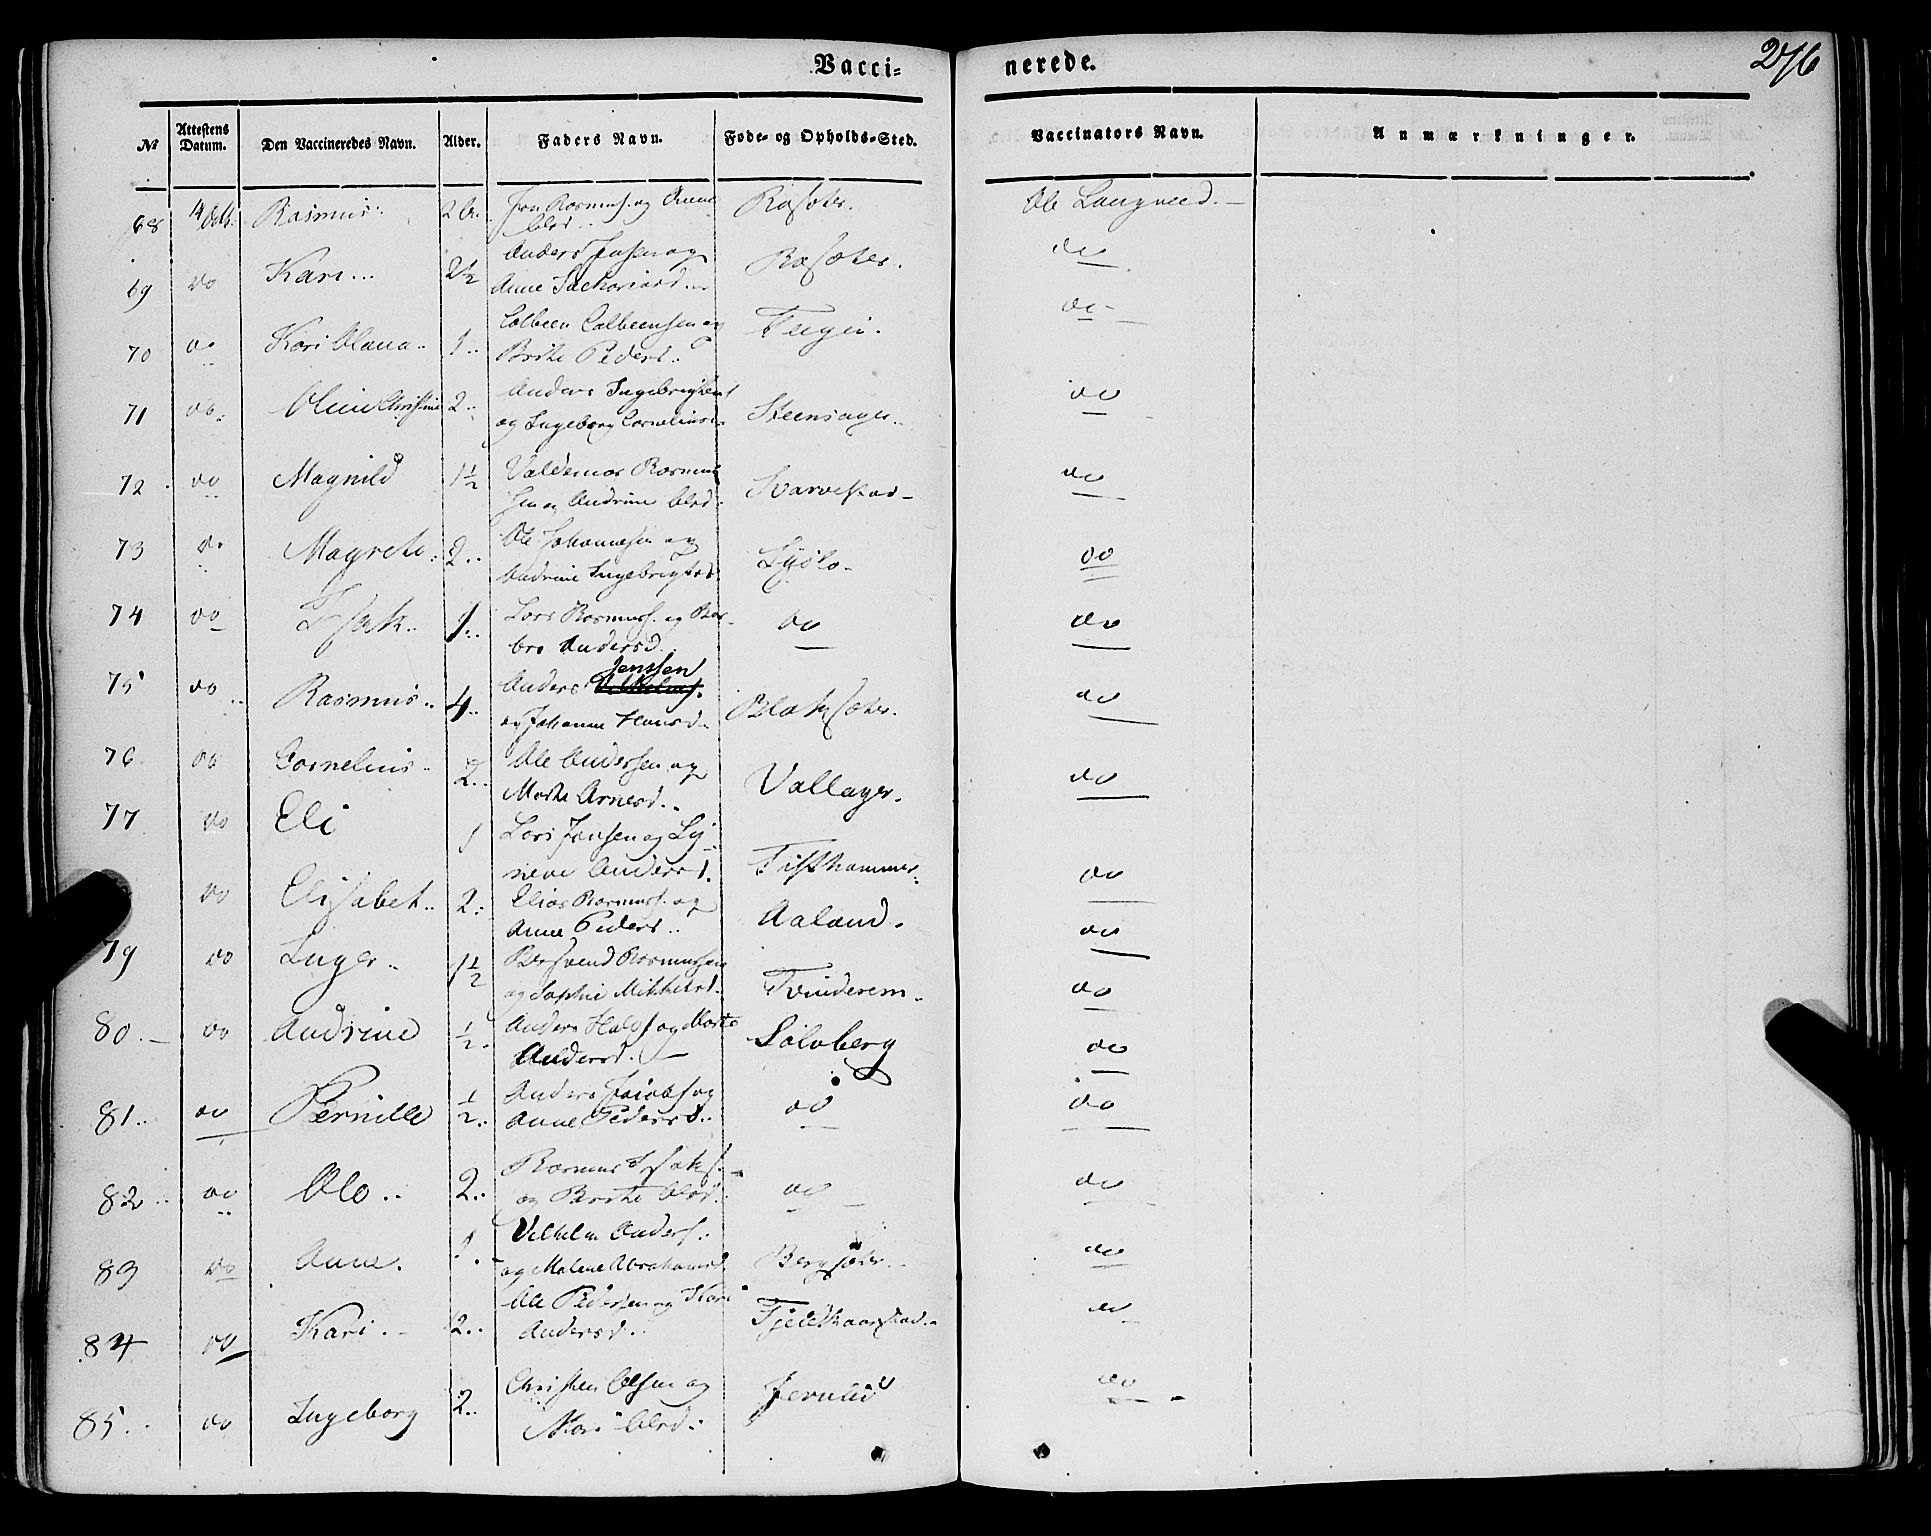 276
Vacci= nerede.
No Attestens Datum. Den Vaccineredes Navn. Alder. Faders Navn. Føde- og Opholds-Sted. Vaccinators Navn. Anmærkninger.
68 Rasmus. Jon Rasmus. og Anne Ole Langved.
Olsd..
Anders Jensen og
69 do Kari... 2½ Anne Sachariasd... do
Colbeen Colbeensen og
70 do Kari Olana.. 1.. Brite Pedersd.. do
Anders Ingebrigtsens
71 do Oline Christine 2.. og Ingeborg Corneliusd. Steensager.. do
Valdemar Rasmus
72 do Magnild 1½ sen og Andrine Olsd. Skarvestad do
Ole Johannesen og
73 do Magrete. 2.. Andrine Ingebrigtsd. do
74 do Isak.. 1.. Lars Rasmuss. og Bar- do do
bro Andersd.
Jenssen
75 do Rasmus.. 4.. Anders Vilhelms. Blaksæter. do
og Johanne Hansd..
76 do Cornelius. 2.. Ole Andersen og do
Marte Arnesd.. Vallager.
77 do Eli 1 Lars Jonsen og Sy-
neve Andersd. Tisthammer. do
do Elisabet.. 2.. Elias Rasmuss. og
Anne Pedersd.. Aaland. do
79 do Inger.. 1½ Bersvend Rasmussen
og Sophie Mikkelsd. Tvinderem. do
80. do Andrine ½. Anders Hals. og Marte Sølvberg do
Andersd.
81.. do Pernille ½.. Anders Jacobs. og do do
Anne Pedersd..
82.. do Ole.. 2.. Rasmus Isaks. do do
og Brite Olsd..
83 do Anne. 1. Vilhelm Anders. Bergsæter. do
og Malene Abrahamsd.
84 do Kari. 2.. Ole Pedersen og Kari Fjeldhaarstad. do
Andersd..
85.. do Ingeborg 2.. Christen Olsen og do
Mari Olsd.